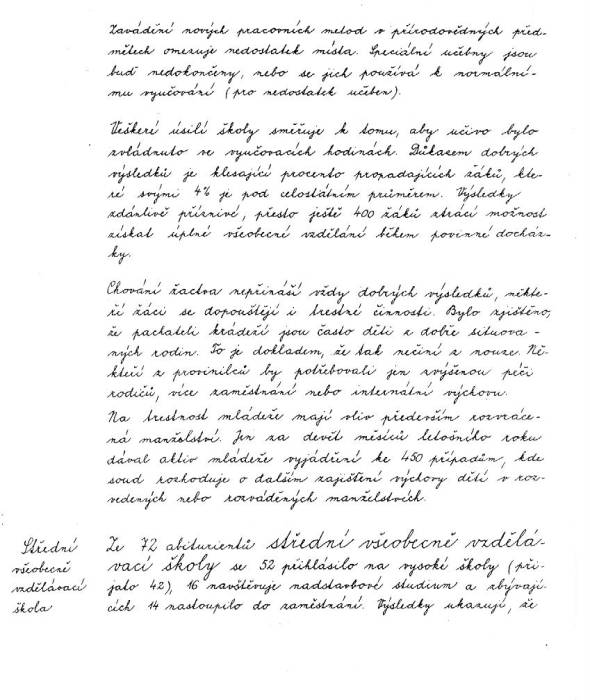 Zavádění nových pracovních metod v přírodovědných před-
mětech omezuje nedostatek místa. Speciální učebny jsou
buď nedokončeny, nebo se jich používá k normální-
mu vyučování (pro nedostatek učeben).
Veškeré úsilí školy směřuje k tomu, aby učivo bylo
zvládnuto ve vyučovacích hodinách. Důkazem dobrých
výsledků je klesající procento propadajících žáků, kte-
ré svými 4% je pod celostátním průměrem. Výsledky
zdánlivě příznivé, přesto ještě 400 žáků ztrácí možnost
získat úplné všeobecné vzdělání během povinné docház-
ky.
Chování žactva nepřináší vždy dobrých výsledků, někte-
ří žáci se dopouštějí i trestné činnosti. Bylo zjištěno,
že pachateli krádeží jsou často děti z dobře situova-
ných rodin. To je dokladem, že tak nečiní z nouze. Ně-
kteří z provinilců by potřebovali jen zvýšenou péči
rodičů, více zaměstnání nebo internátní výchovu.
Na trestnost mládeže mají vliv především rozvráce-
ná manželství. Jen za devět měsíců letošního roku
dával aktiv mládeže vyjádření ke 450 případům, kde
soud rozhoduje o dalším zajištění výchovy dětí v roz-
vedených nebo rozváděných manželstvích.
Střední
všeobecně
vzdělávací
škola
Ze 72 abiturientů střední všeobecně vzdělá-
vací školy se 52 přihlásilo na vysoké školy (při-
jato 42), 16 navštěvuje nadstavbové studium a zbývají-
cích 14 nastoupilo do zaměstnání. Výsledky ukazují, že